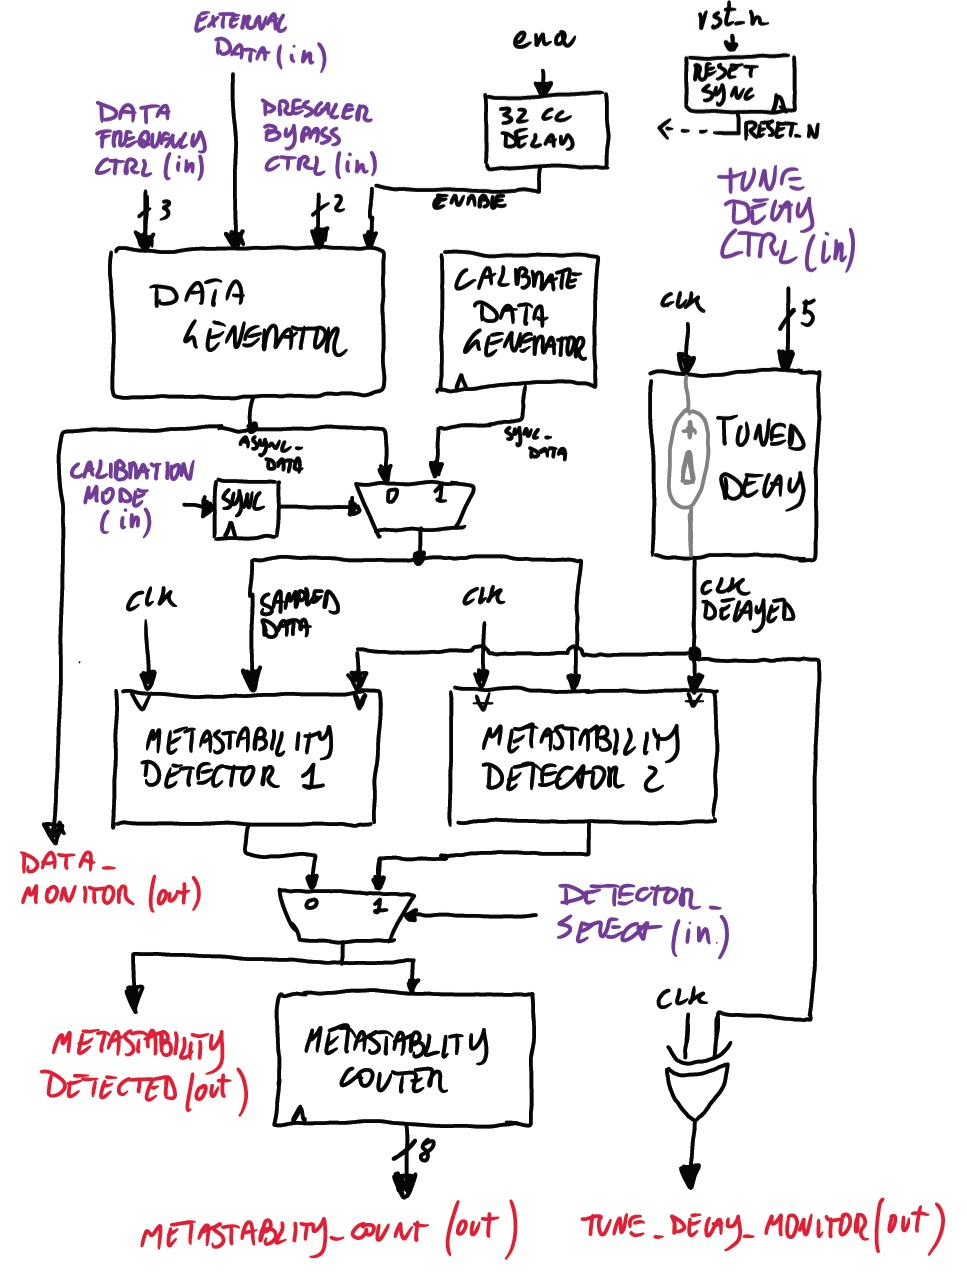 EXTERNAL
DATA (in)
ena
rst_n
RESET
SYNC
RESET_N
DATA
FREQUENCY
CTRL (in)
PRESCALER
BYPASS
CTRL (in)
32 CC
DELAY
3
2
ENABLE
TUNE
DELAY
CTRL (in)
DATA
GENERATOR
CALIBRATE
DATA
GENERATOR
CLK
5
TUNED
DELAY
+
Δ
ASYNC_
DATA
SYNC_
DATA
CALIBRATION
MODE
(in)
SYNC
0 1
CLK
SAMPLED
DATA
CLK
CLK
DELAYED
METASTABILITY
DETECTOR 1
METASTABILITY
DETECTOR 2
DATA_
MONITOR (out)
0 1
DETECTOR_
SELECT (in)
CLK
METASTABILITY
DETECTED (out)
METASTABLITY
COUTER
8
METASTABLITY_COUNT (out)
TUNE_DELAY_MONITOR (out)